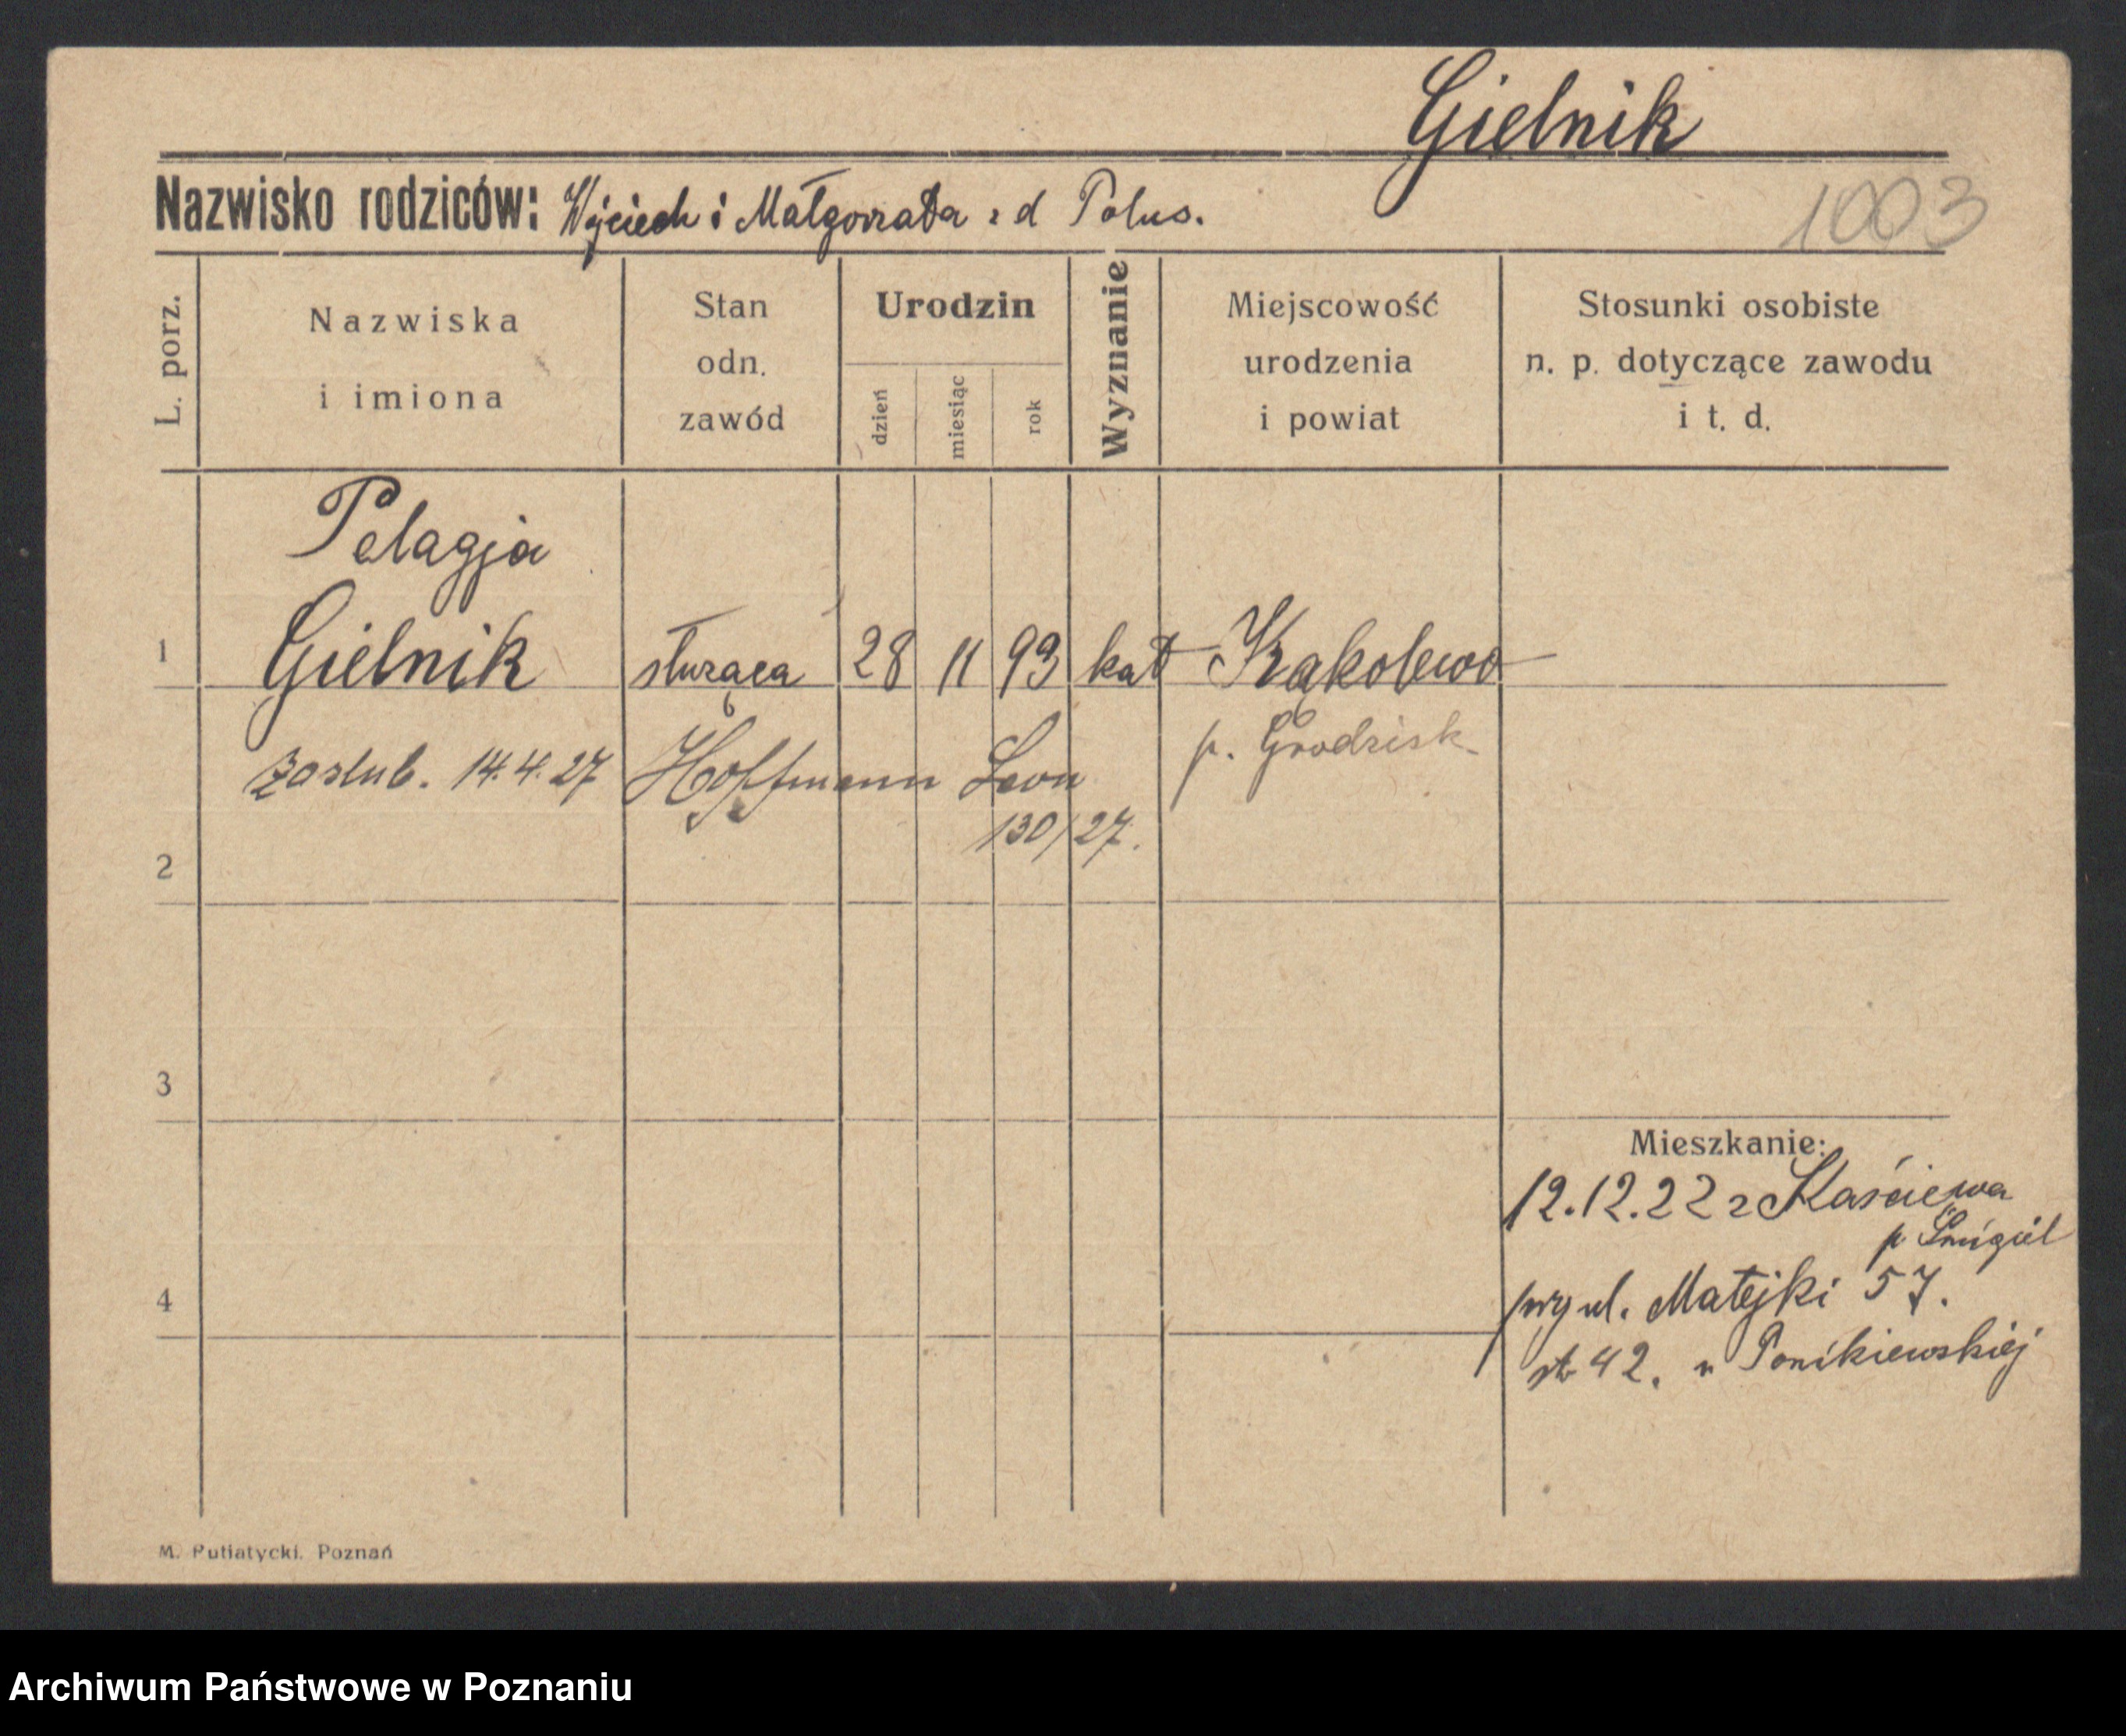 Gielnik
Nazwisko rodziców: Wojciech i Małgorzata z d Polus.
1003
L. porz.
Nazwiska
i imiona
Stan
odn.
zawód
Urodzin
dzień
miesiąc
rok
Wyznanie
Miejscowość
urodzenia
i powiat
Stosunki osobiste
n. p. dotyczące zawodu
i t. d.
Pelagja
1 Gielnik służąca 28 11 93 kat Kąkolewo
p. Grodzisk
zaślub. 14.4.27 Hoffmann Leon
130/27.
2
3
Mieszkanie:
12.12.22 z
p Śmigiel
4
przy ul. Matejki 57.
42. u Ponikiewskiej
M. Putiatycki. Poznań
Archiwum Państwowe w Poznaniu